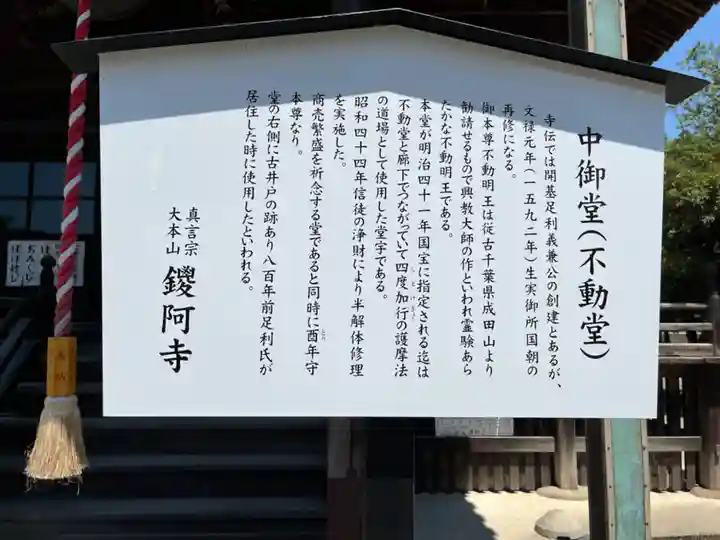 中御堂(不動堂)
寺伝では開基足利義兼公の創建とあるが、
文禄元年(一五九二年)生実御所国朝の
再修になる。
御本尊不動明王は従古千葉県成田山より
勧請せるもので興教大師の作といわれ霊験あら
たかな不動明王である。
本堂が明治四十一年国宝に指定される迄は
不動堂と廊下でつながっていて四度加行の護摩法
の道場として使用した堂宇である。
昭和四十四年信徒の浄財により半解体修理
を実施した。
商売繁盛を祈念する堂であると同時に酉年守
本尊なり。
堂の右側に古井戸の跡あり八百年前足利氏が
居住した時に使用したといわれる。
真言宗
大本山
鑁阿寺